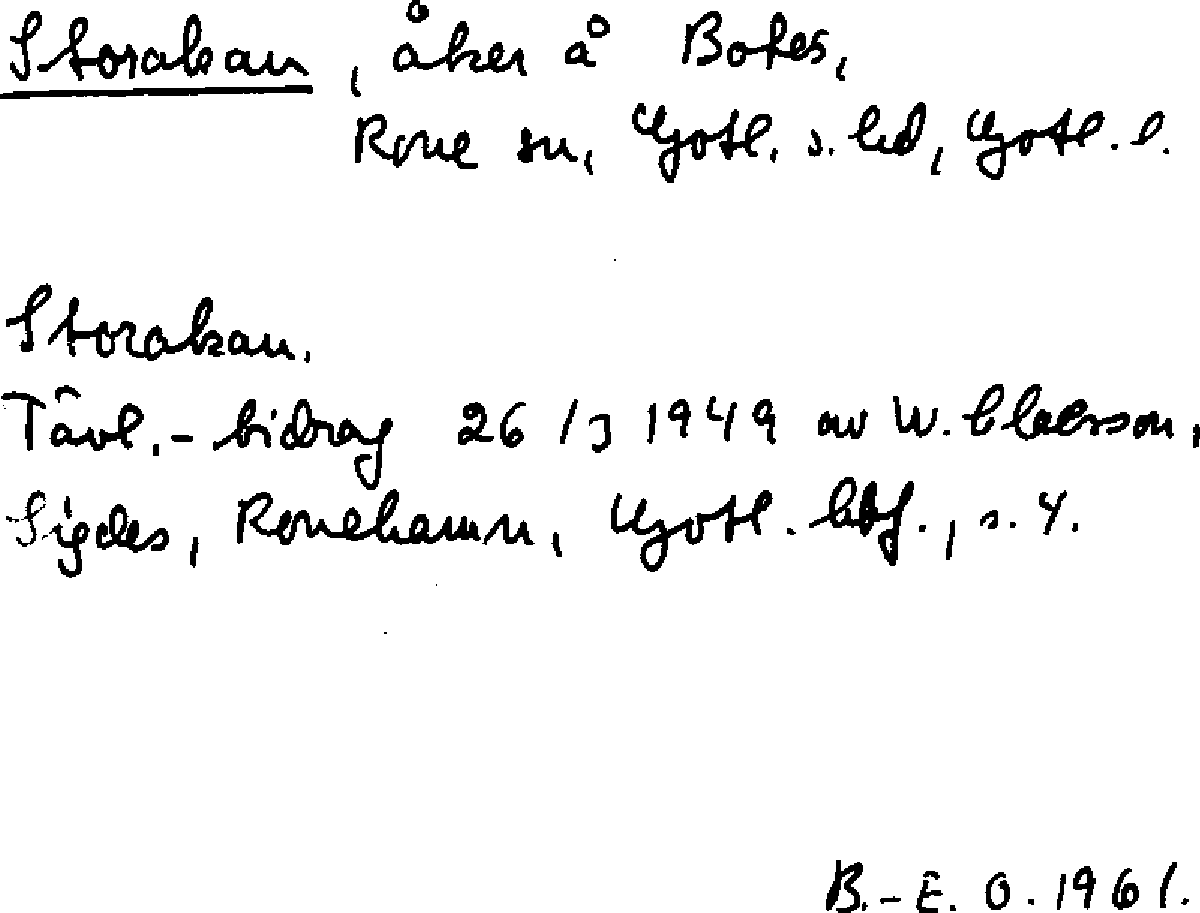 Storakan, åker å Botes,
Rone sn, Gotl. s. hd, Gotl. l.
Storakan.
Tävl.-bidrag 26/3 1949 av W. Claesson,
Sigdes, Ronehamn, Gotl. s. 4.
B.-E. O. 1961.